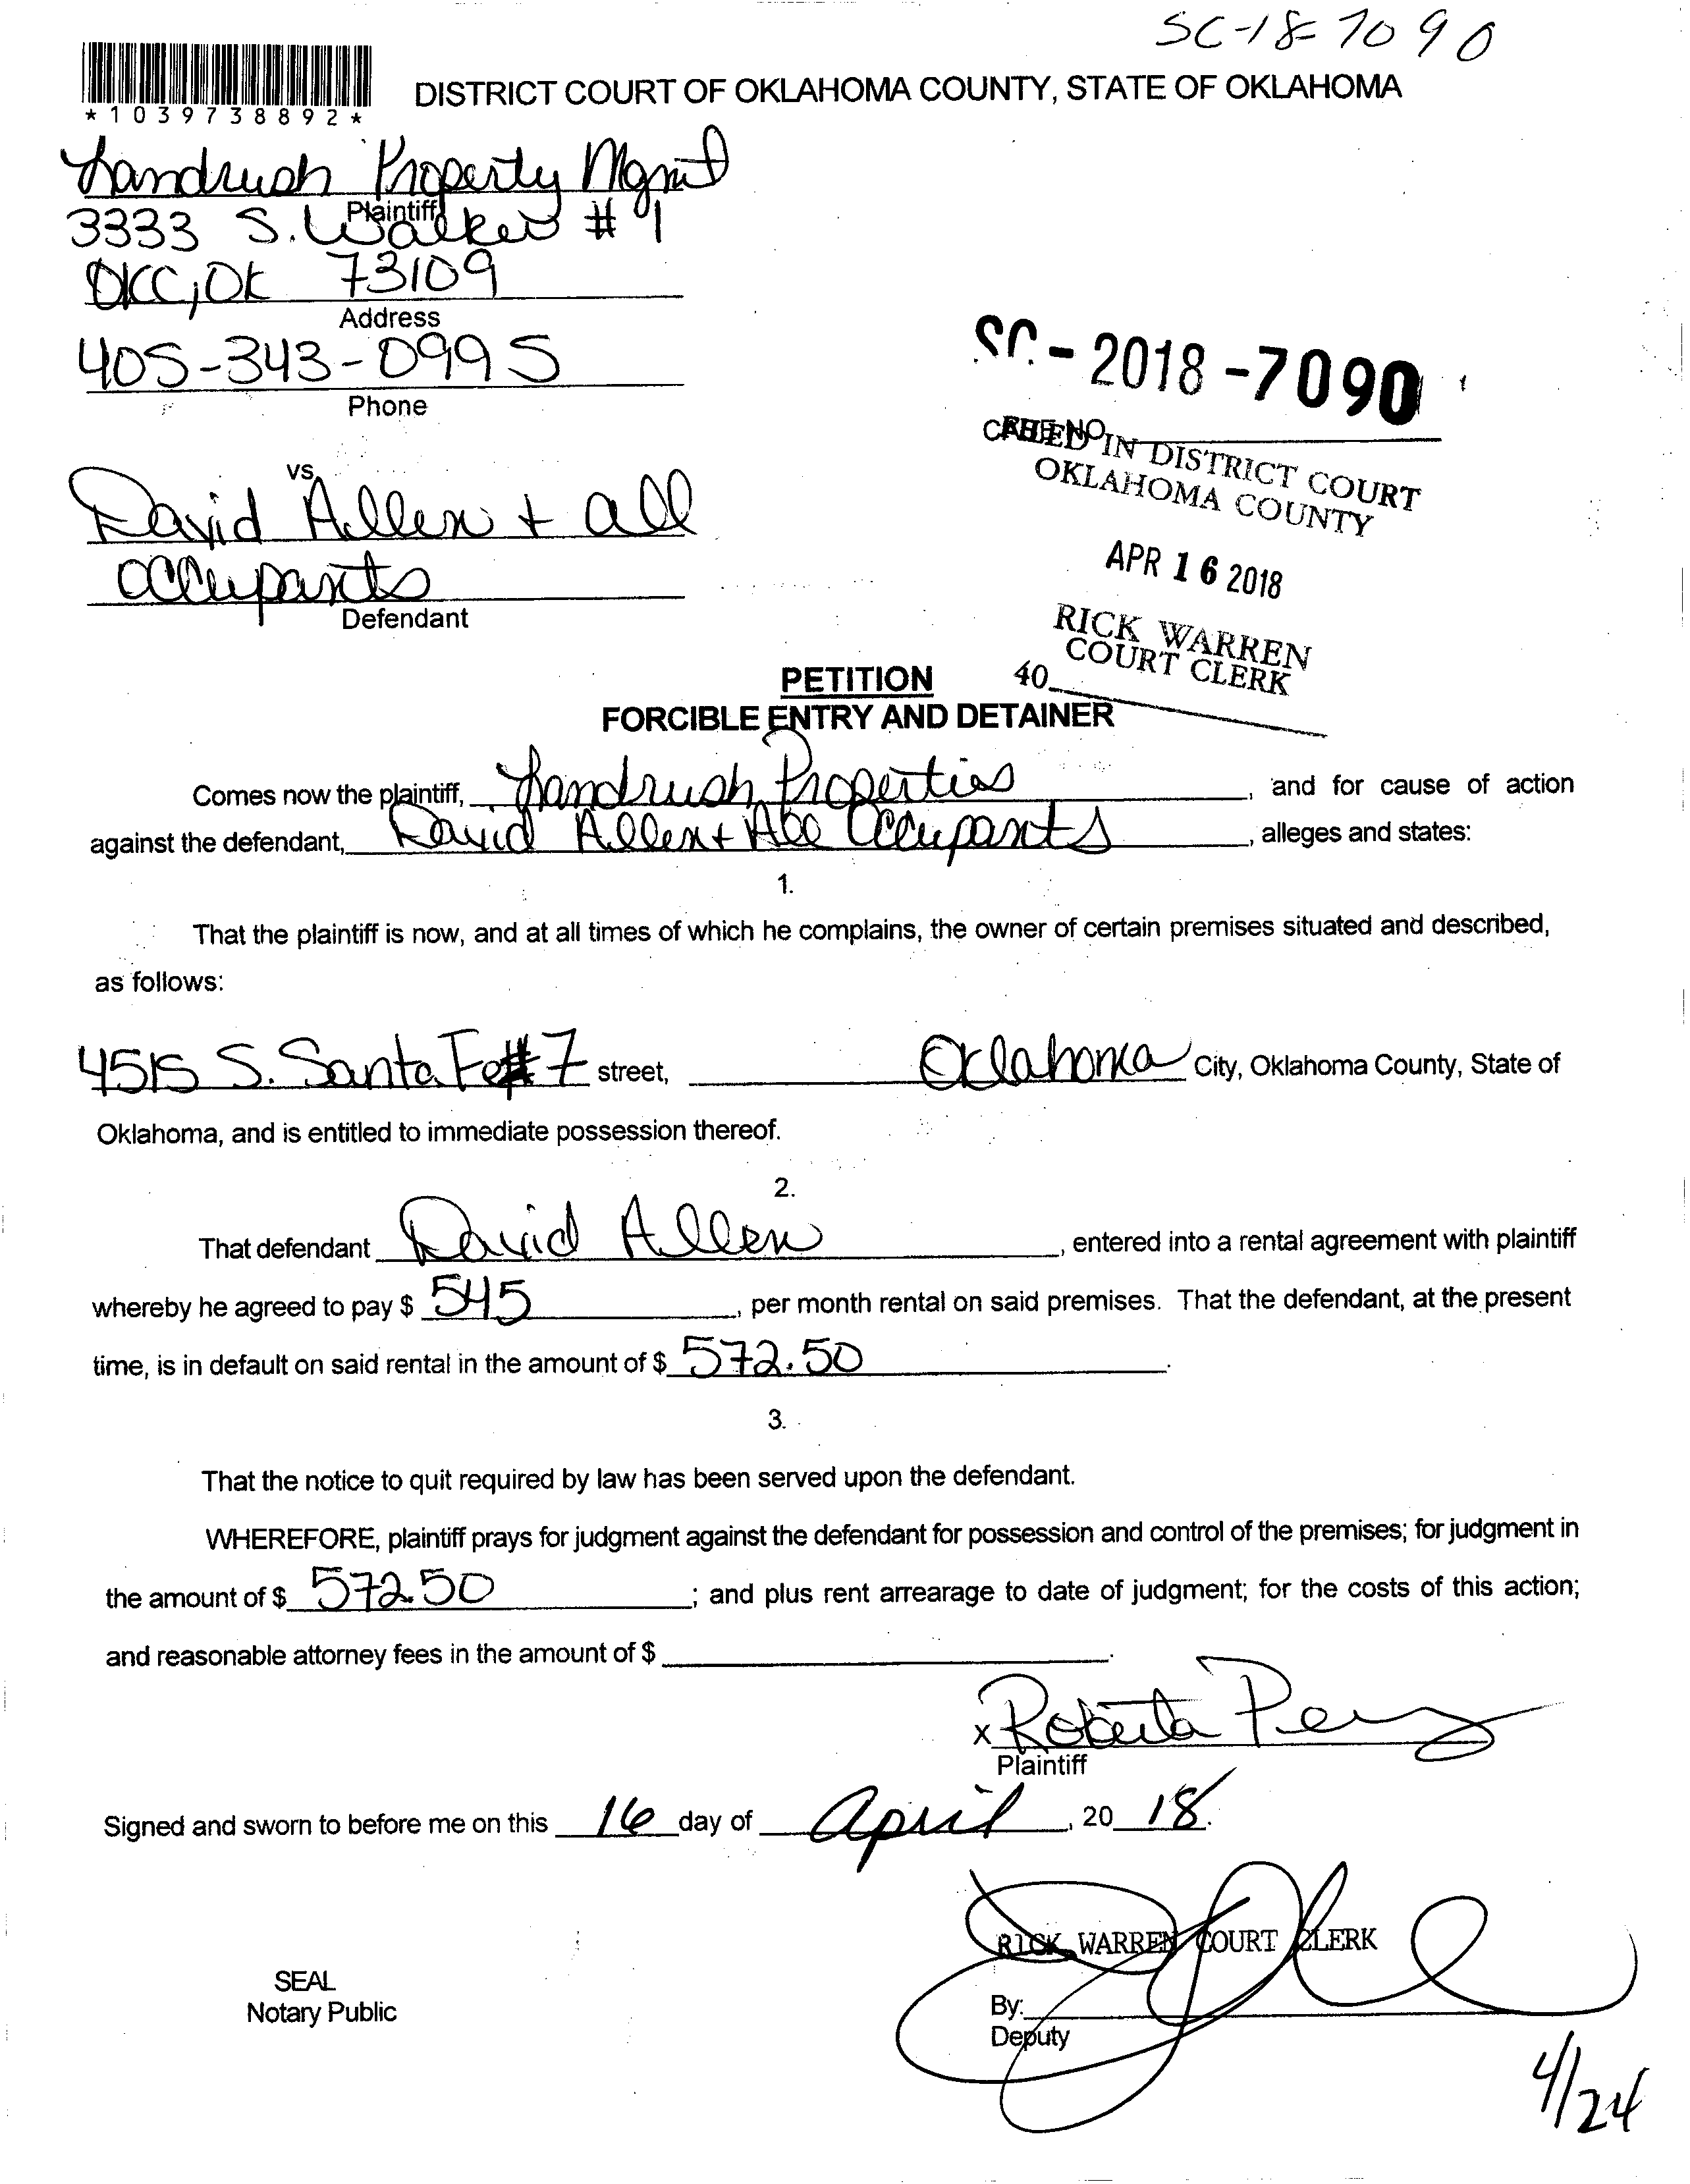 SC-18-7090
*1039738892*
DISTRICT COURT OF OKLAHOMA COUNTY, STATE OF OKLAHOMA
Landrush Property Mgmt
Plaintiff
3333 S. Walker #1
OKC, OK 73109
Address
405-343-0995
Phone
SC - 2018 - 7090
CASE NO.
FILED IN DISTRICT COURT
OKLAHOMA COUNTY
vs.
David Allen + all
occupants
Defendant
APR 16 2018
RICK WARREN
COURT CLERK
40
PETITION
FORCIBLE ENTRY AND DETAINER
Comes now the plaintiff, Landrush Properties, and for cause of action
against the defendant, David Allen + All Occupants, alleges and states:
1.
That the plaintiff is now, and at all times of which he complains, the owner of certain premises situated and described,
as follows:
4515 S. Santa Fe #7 street, Oklahoma City, Oklahoma County, State of
Oklahoma, and is entitled to immediate possession thereof.
2.
That defendant David Allen, entered into a rental agreement with plaintiff
whereby he agreed to pay $ 545, per month rental on said premises. That the defendant, at the present
time, is in default on said rental in the amount of $ 572.50.
3.
That the notice to quit required by law has been served upon the defendant.
WHEREFORE, plaintiff prays for judgment against the defendant for possession and control of the premises; for judgment in
the amount of $ 572.50; and plus rent arrearage to date of judgment; for the costs of this action;
and reasonable attorney fees in the amount of $
x Roberta Perez
Plaintiff
Signed and sworn to before me on this 16 day of April, 20 18.
RICK WARREN COURT CLERK
SEAL
Notary Public
By:
Deputy
4/24